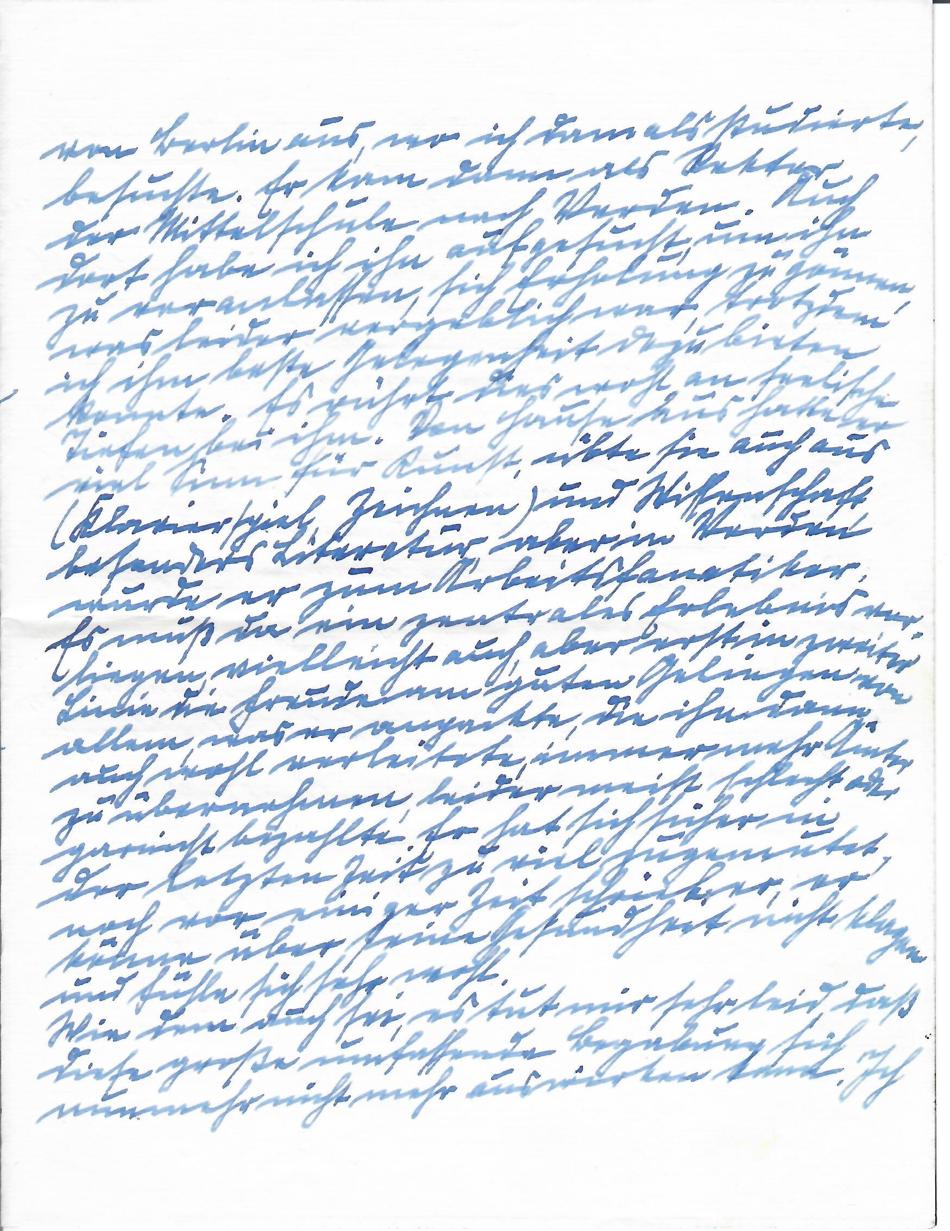 von Berlin aus, wo ich damals studierte,
besuchte. Er kam dann als Rektor
der Mittelschule nach Verden. Auch
dort habe ich ihn aufgesucht, um ihn
zu veranlassen, sich Erholung zu gönnen,
was leider vergeblich war, trotzdem
ich ihm beste Gelegenheit dazu bieten
konnte. Es rührt dies wohl an seelische
Tiefen bei ihm. Von Hause aus hatte er
viel Sinn für Kunst, übte sie auch aus
(Klavierspiel, Zeichnen) und Wissenschaft,
besonders Literatur, aber in Verden
wurde er zum Arbeitsfanatiker.
Es muß da ein zentrales Erlebnis vor-
liegen, vielleicht auch, aber erst in zweiter
Linie die Freude am guten Gelingen von
allem, was er anpackte, die ihn dann
auch wohl verleitete, immer mehr Ämter
zu übernehmen, leider meist schlecht oder
garnicht bezahlte. Er hat sich sicher in
der letzten Zeit zu viel zugemutet,
noch vor einiger Zeit schrieb er, er
könne über seine Gesundheit nicht klagen
und fühle sich sehr wohl.
Wie dem auch sei, es tut mir sehr leid, daß
diese große umfassende Begabung sich
nunmehr nicht mehr auswirken kann. Ich